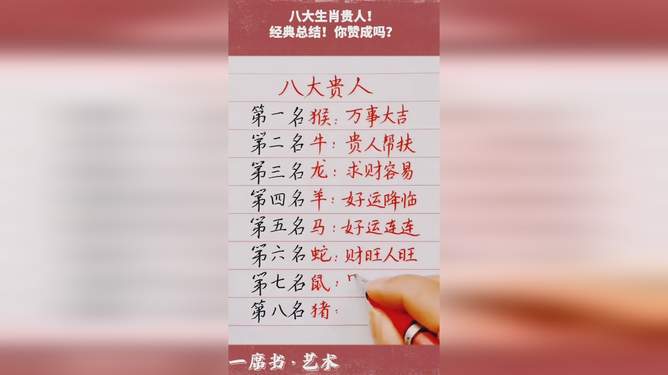 八大生肖贵人！
经典总结！你赞成吗？
八大贵人
第一名猴：万事大吉
第二名牛：贵人帮扶
第三名龙：求财容易
第四名羊：好运降临
第五名马：好运连连
第六名蛇：财旺人旺
第七名鼠：
第八名猪：
一席书·艺术